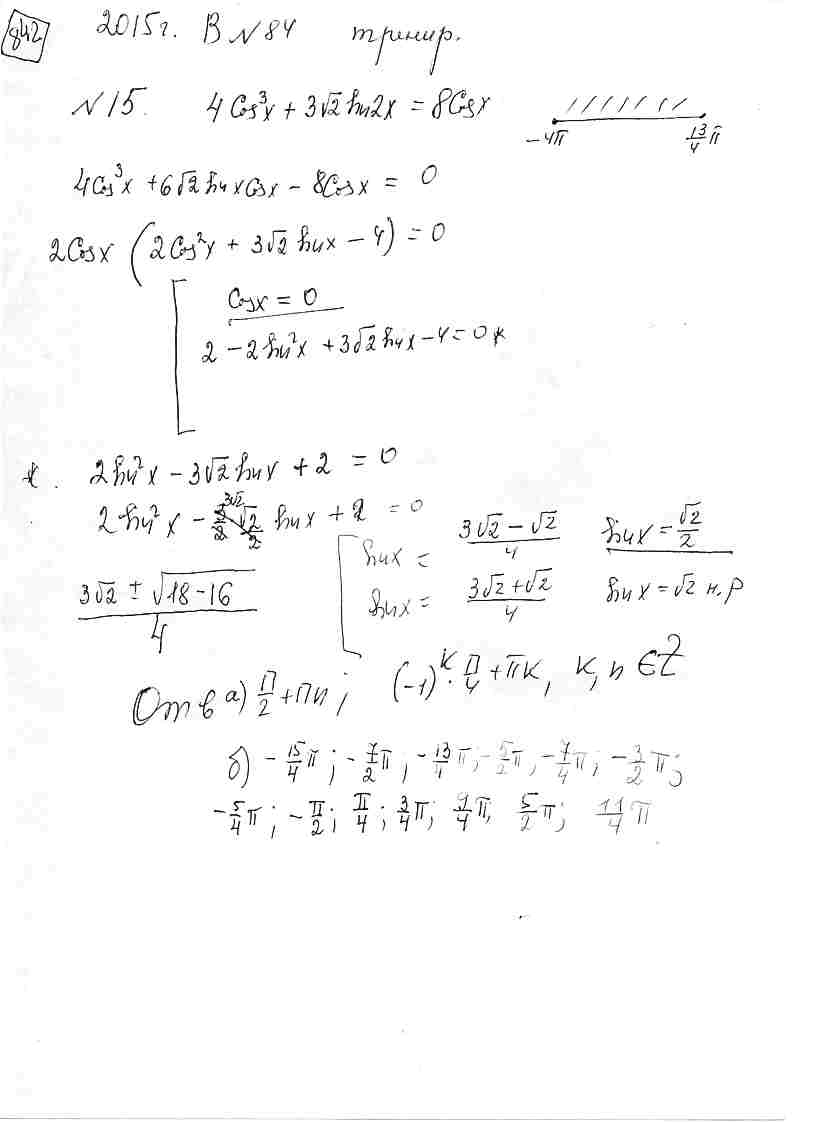 842
2015г. В № 84 тренир.
№ 15. 4 Cos³x + 3√2 sin2x = 8Cosx
-4π 13/4 π
4Cos³x + 6√2 sinx Cosx - 8Cosx = 0
2Cosx (2Cos²x + 3√2 sinx - 4) = 0
Cosx = 0
2 - 2sin²x + 3√2 sinx - 4 = 0 *
*. 2sin²x - 3√2 sinx + 2 = 0
2sin²x - 3√2 sinx + 2 = 0
(3√2 ± √(18-16))/4
sinx = (3√2 - √2)/4 sinx = √2/2
sinx = (3√2 + √2)/4 sinx = √2 н.р
Отв а) π/2 + πn; (-1)^k · π/4 + πk, k, n ∈ Z
б) -15/4 π; -7/2 π; -13/4 π; -5/2 π; -7/4 π; -3/2 π;
-5/4 π; -π/2; π/4; 3/4 π; 9/4 π, 5/2 π; 11/4 π